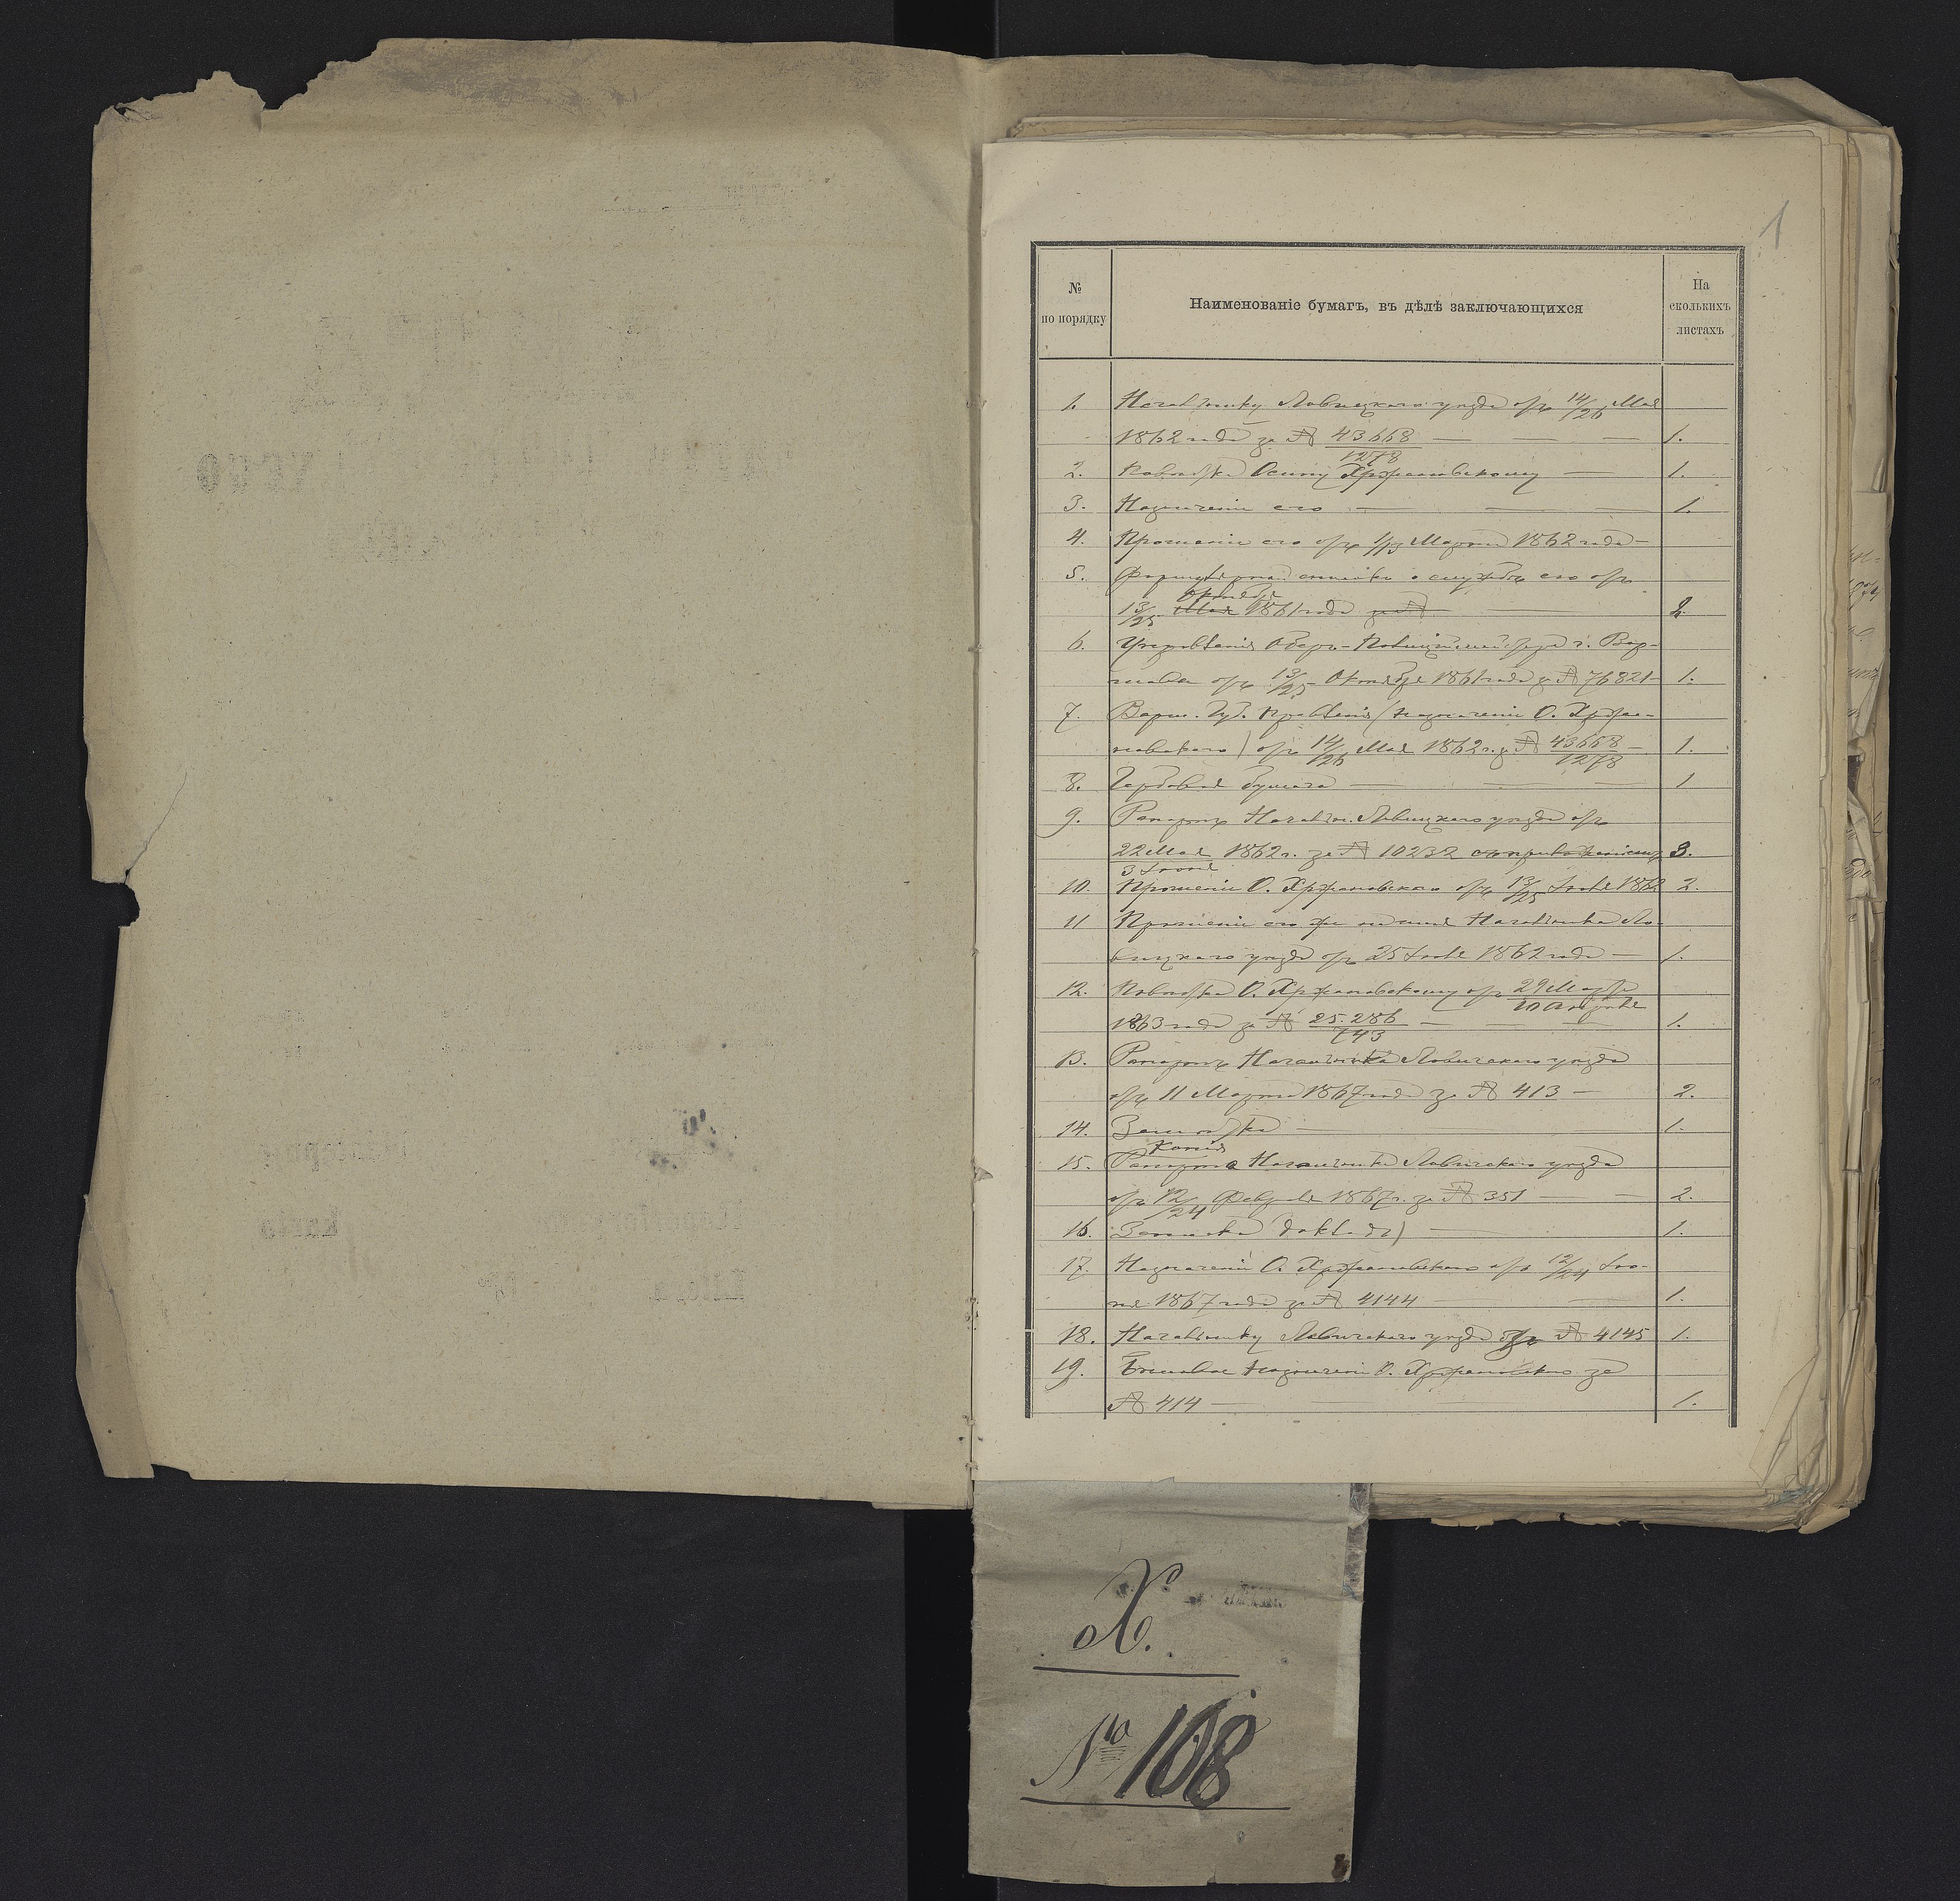 1
№ по порядку
Наименованіе бумагъ, въ дѣлѣ заключающихся
На сколькихъ листахъ
1. Начальнику Ловицкаго уѣзда отъ 14/26 Мая
1862 года за № 43668/1278 — — — 1.
2. Повѣстка Осипу Хржановскому — 1.
3. Назначеніе его — — — 1.
4. Прошеніе его отъ 1/13 Марта 1862 года —
5. Формулярный списокъ о службѣ его отъ
Октября
13/25 Мая 1861 года за № — 2.
6. Управленія Оберъ-Полиціймейстера г. Вар-
шавы отъ 13/25 Октября 1861 года за № 76821 — 1.
7. Варш. Губ. Правленія (назначеніе О. Хржа-
новскаго) отъ 14/26 Мая 1862 г. за № 43668/1278 — 1.
8. Гербовая бумага — — — 1
9. Рапортъ Начальн. Ловицкаго уѣзда отъ
22 Мая/3 Іюня 1862 г. за № 10232 съ приложеніемъ 3.
10. Прошеніе О. Хржановскаго отъ 13/25 Іюля 1862 2.
11 Прошеніе его же на имя Начальника Ло-
вицкаго уѣзда отъ 25 Іюля 1862 года — 1.
12. Повѣстка О. Хржановскому отъ 29 Марта/10 Апрѣля
1863 года за № 25.286/743 — — — 1.
13. Рапортъ Начальника Ловичскаго уѣзда
отъ 11 Марта 1867 года за № 413 — 2.
14. — 1.
Копія
15. Рапорта Начальника Ловичскаго уѣзда
отъ 12/24 Февраля 1867 г. за № 351 — — 2.
16. Записка (докладъ) — 1.
17. Назначеніе О. Хржановскаго отъ 12/24 Ію-
ня 1867 года за № 4144 — — 1.
18. Начальнику Ловичскаго уѣзда за № 4145 1.
19. назначеніе О. Хржановскаго за
№ 414 — — — 1.
Х.
№ 108